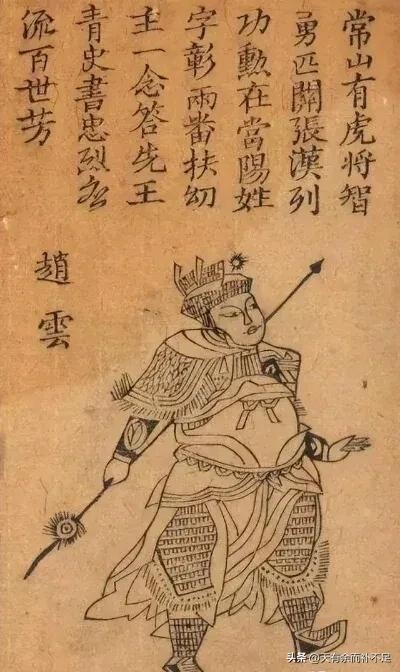 常山有虎將智
勇匹關張漢列
功勳在當陽姓
字彰兩番扶幼
主一念答先王
青史書忠烈
流百世芳
趙雲
头条 @天有余而补不足